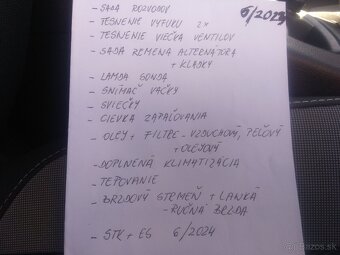 - SADA ROZVODOV
6/2023
- TESNENIE VÝFUKU 2x
- TESNENIE VIEČKA VENTILOV
- SADA REMEŇA ALTERNÁTORA
+ KLADKY
- LAMDA SONDA
- SNÍMAČ VAČKY
- SVIEČKY
- CIEVKA ZAPAĽOVANIA
- OLEJ + FILTRE - VZDUCHOVÝ, PEĽOVÝ
+ OLEJOVÝ
- DOPLNENÁ KLIMATIZÁCIA
- TEPOVANIE
- BRZDOVÝ STRMEŇ + LANKÁ
- RUČNÁ BRZDA
- STK + EG 6/2024
bazos.sk